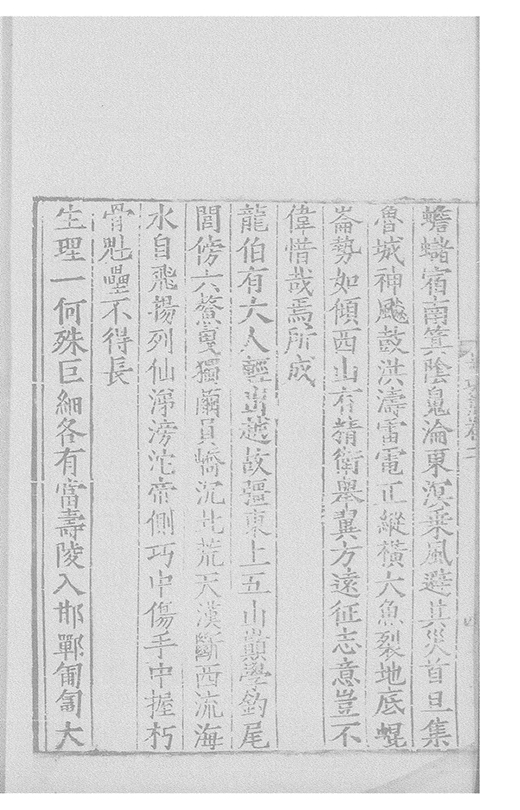 蟾蜍宿南箕陰鬼淪東溟乗風避其災首旦集
魯城神颷鼓洪濤雷電正縱横大魚裂地底鯤
崙勢如傾西山有精衛舉翼方遠征志意豈不
偉惜哉焉所成
龍伯有大人輕出越故疆東上五山巔學釣尾
閭傍六鰲夐獨羂員嶠沉北荒天漢斷西流海
水自飛揚列仙涕滂沱帝側巧中傷手中握朽
骨魁壘不得長
生理一何殊巨細各有當壽陵入邯鄲匍匐大